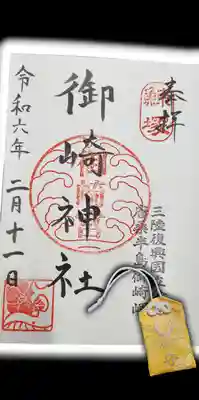 奉拝
三陸復興国立
唐桑半島御崎岬
御崎神社
令和六年 二月十一日